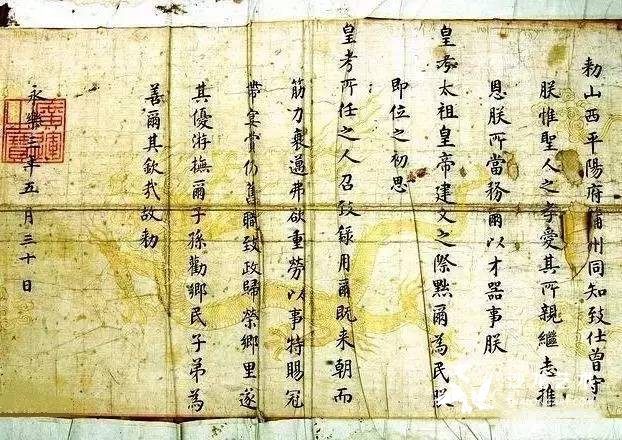 勑山西平陽府蒲州同知致仕曾守
朕惟聖人之孝愛其所親繼志推
恩朕所當務爾以才器事朕
皇考太祖皇帝建文之際黜爾為民朕
即位之初思
皇考所任之人召致錄用爾既来朝而
筋力衰邁弗欲重勞以事特賜冠
帶宴賞仍舊職致政歸榮鄉里遂
其優游撫爾子孫勸鄉民子弟為
善爾其欽哉故勑
永樂三年五月三十日
廣運之寶